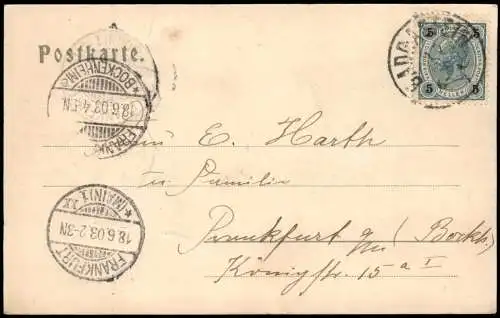 Postkarte.
5 5
5 5
* BOCKENHEIM *
18.6.03.4-5N
FRANKF
Herrn E. Harth
u. Familie
Frankfurt a/m (Bockh.)
Königstr. 15 a I
* (MAIN) 1. *
18.6.03.2-3N
FRANKFURT